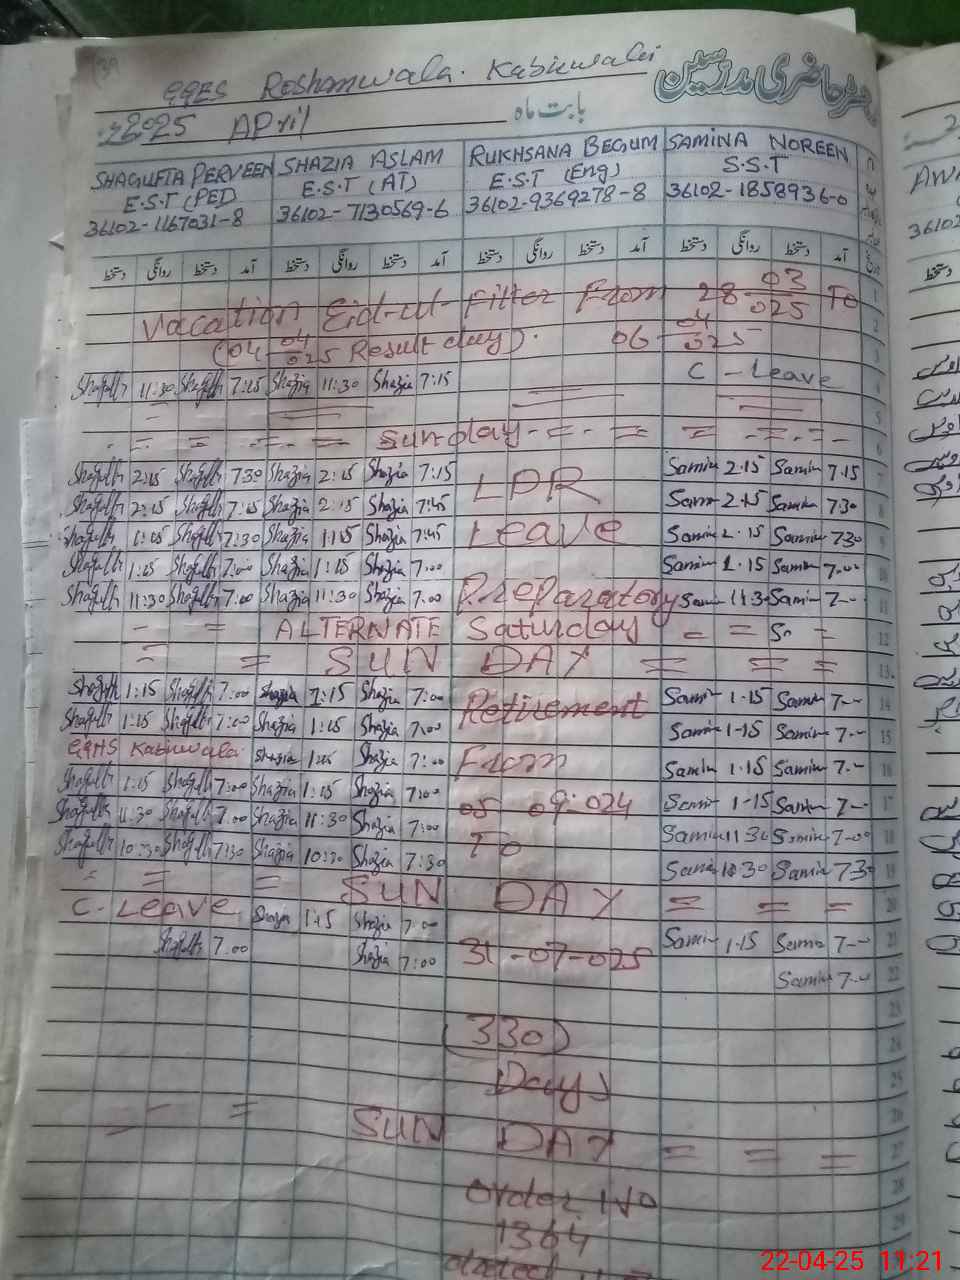 39
GGES Roshanwala. Kabirwala
رجسٹر حاضری مدرسین
2025 April بابت ماہ
SHAGUFTA PERVEEN SHAZIA ASLAM RUKHSANA BEGUM SAMINA NOREEN
E.S.T (PED) E.S.T (AT) E.S.T (Eng) S.S.T
36102-1167031-8 36102-7130569-6 36102-9369278-8 36102-1858936-0
دستخط روانگی دستخط آمد دستخط روانگی دستخط آمد دستخط روانگی دستخط آمد دستخط روانگی دستخط آمد
Vacation Eid-ul-Fitter From 28-03-025 To 1
(04-04-025 Result day). 06-04-025 2
3
Shagufta 11:30 Shagufta 7:15 Shazia 11:30 Shazia 7:15 C-Leave 4
5
= = = = Sunday = = = = 6
Shagufta 2:15 Shagufta 7:30 Shazia 2:15 Shazia 7:15 LPR Samina 2.15 Samina 7.15 7
Shagufta 2:15 Shagufta 7:15 Shazia 2:15 Shazia 7:45 Samina 2.15 Samina 730 8
Shagufta Shagufta 7:30 Shazia 1:15 Shazia 7:45 Leave Samina Samina 730 9
Shagufta 1:15 Shagufta 7:00 Shazia 1:15 Shazia 7.00 Samina 1.15 Samina 7.00 10
Shagufta 11:30 Shagufta 7:00 Shazia 11:30 Shazia 7.00 Preparatory Samina 11:30 Samina 7-- 11
= = ALTERNATE Saturday = = = 12
= = SUN DAY = = = 13
Shagufta 1:15 Shagufta 7:00 Shazia 1:15 Shazia 7:00 Retirement Samina 1.15 Samina 7-- 14
Shagufta 1:15 Shagufta 7:00 Shazia 1:15 Shazia 7.00 Samina 1-15 Samina 7-- 15
GGHS Kabirwala Shazia 1:15 Shazia 7:00 From Samina 1.15 Samina 7-- 16
Shagufta 1:15 Shagufta 7:00 Shazia 1:15 Shazia 7:00 05 09-024 Samina 1-15 Samina 7-- 17
Shagufta 11.30 Shagufta 7.00 Shazia 11:30 Shazia 7:00 Samina 11 30 Samina 7-00 18
Shagufta 10:30 Shagufta 7:30 Shazia 10:30 Shazia 7:30 To Samina 10 30 Samina 730 19
= = = SUN DAY = = = 20
C-Leave Shazia 1:15 Shazia 7.00 Samina 1.15 Samina 7-- 21
Shagufta 7.00 Shazia 7:00 31-07-025 Samina 7-- 22
23
(330) 24
Days 25
26
= = SUN DAY = = = 27
28
order No 29
1364
dated
22-04-25 11:21